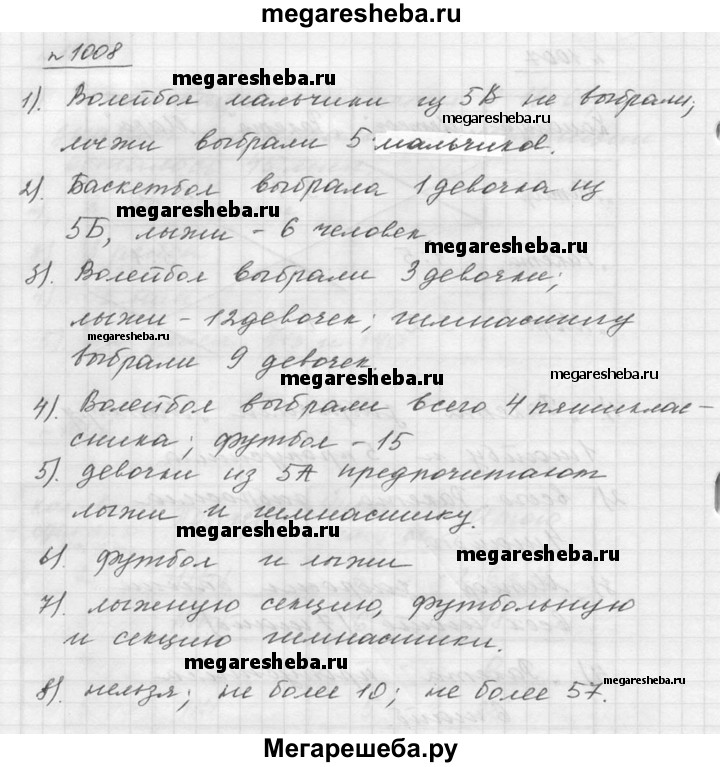 megaresheba.ru
№ 1008
megaresheba.ru
1). Волейбол мальчики из 5В не выбрали;
megaresheba.ru
лыжи выбрали 5 мальчиков.
2). Баскетбол выбрала 1 девочка из
megaresheba.ru
5Б, лыжи - 6 человек
3). Волейбол выбрали 3 девочки;
лыжи - 12 девочек; гимнастику
megaresheba.ru
выбрали 9 девочек.
megaresheba.ru
megaresheba.ru
4). Волейбол выбрали всего 4 пятиклас-
сника; футбол - 15
5). девочки из 5А предпочитают
лыжи и гимнастику.
megaresheba.ru
6). футбол и лыжи
megaresheba.ru
7). лыжную секцию, футбольную
и секцию гимнастики.
megaresheba.ru
megaresheba.ru
8). нельзя; не более 10; не более 57.
Мегарешеба.ру